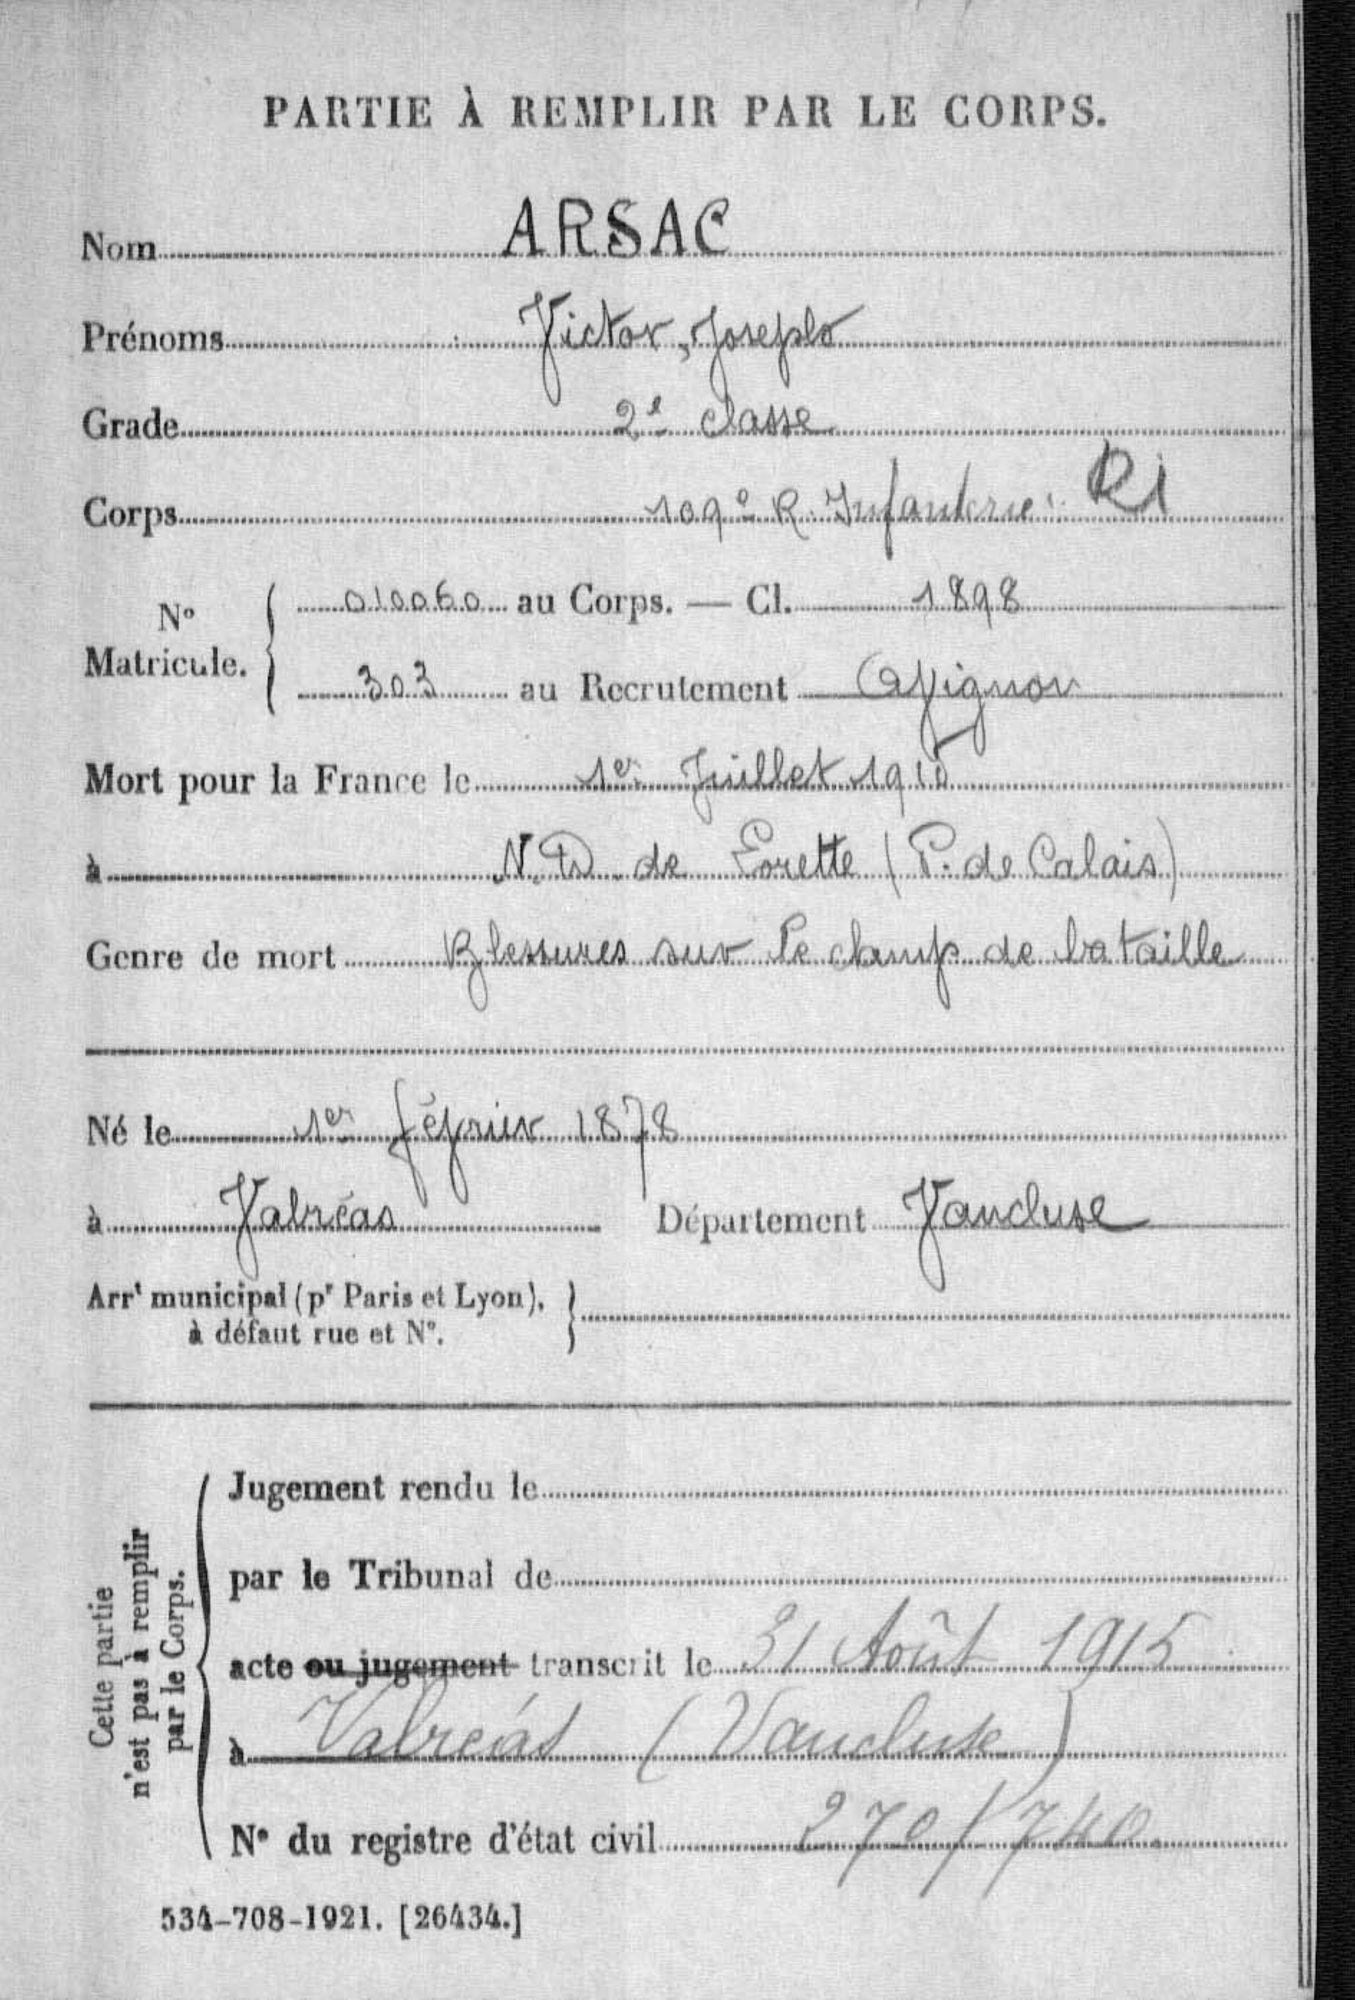 PARTIE À REMPLIR PAR LE CORPS.
Nom ARSAC
Prénoms Victor, Joseph
Grade 2e classe
Corps 109e R. Infanterie RI
No Matricule. 010060 au Corps. — Cl. 1898
303 au Recrutement Avignon
Mort pour la France le 1er Juillet 1915
à N. D. de Lorette (P. de Calais)
Genre de mort Blessures sur le champ de bataille
Né le 1er février 1878
à Valréas Département Vaucluse
Arrt municipal (pr Paris et Lyon),
à défaut rue et N°.
Cette partie
n'est pas à remplir
par le Corps.
Jugement rendu le
par le Tribunal de
acte ou jugement transcrit le 31 Août 1915
à Valréas (Vaucluse)
N° du registre d'état civil 270/740
534-708-1921. [26434.]